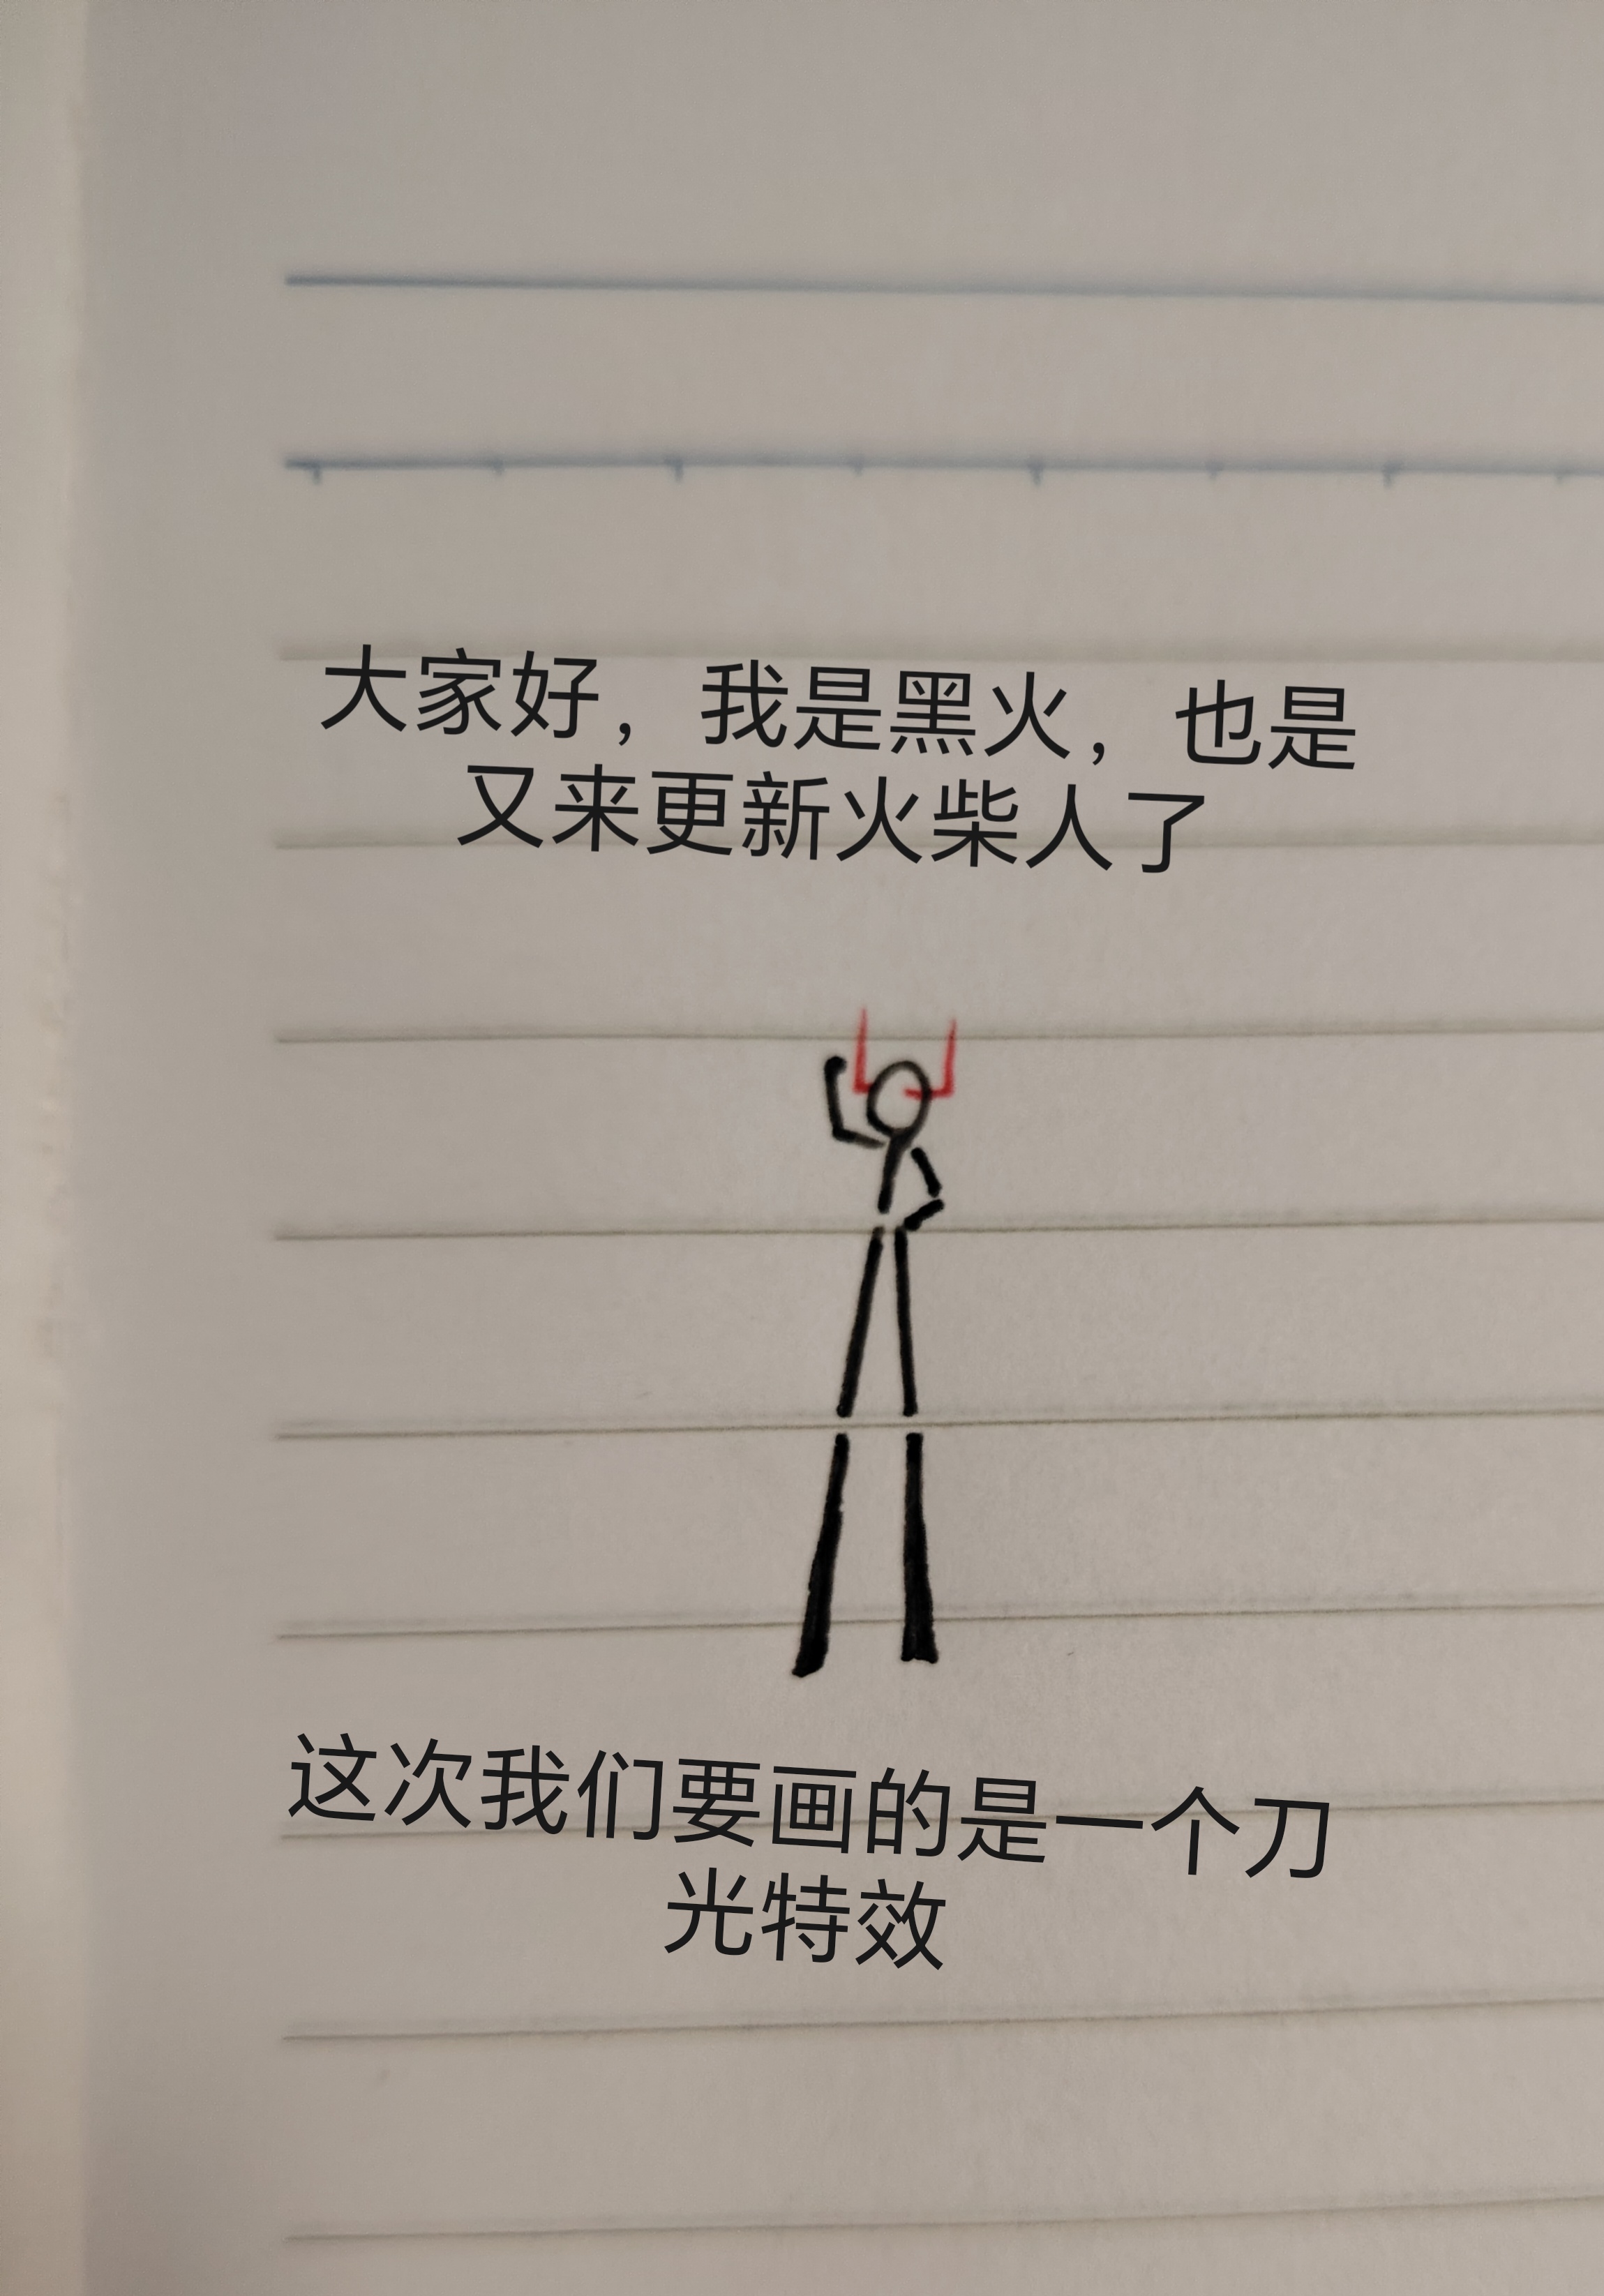 大家好，我是黑火，也是
又来更新火柴人了
这次我们要画的是一个刀
光特效